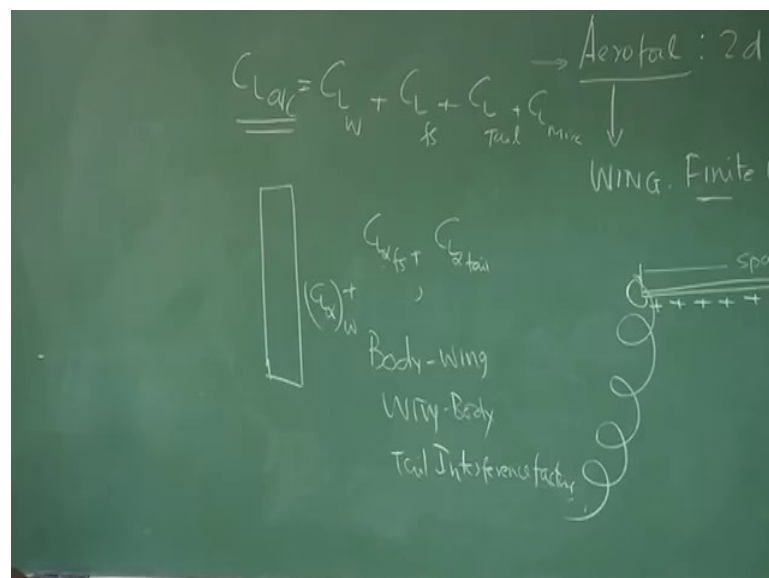 C_L a/c = C_L W + C_L fs + C_L Tail + C_L Misc
→ Aerofoil : 2d
WING. Finite
(C_Lα)_W +
C_Lα fs + C_Lα tail
,
spa
+ + + + +
Body-Wing
Wing-Body
Tail Interference factors